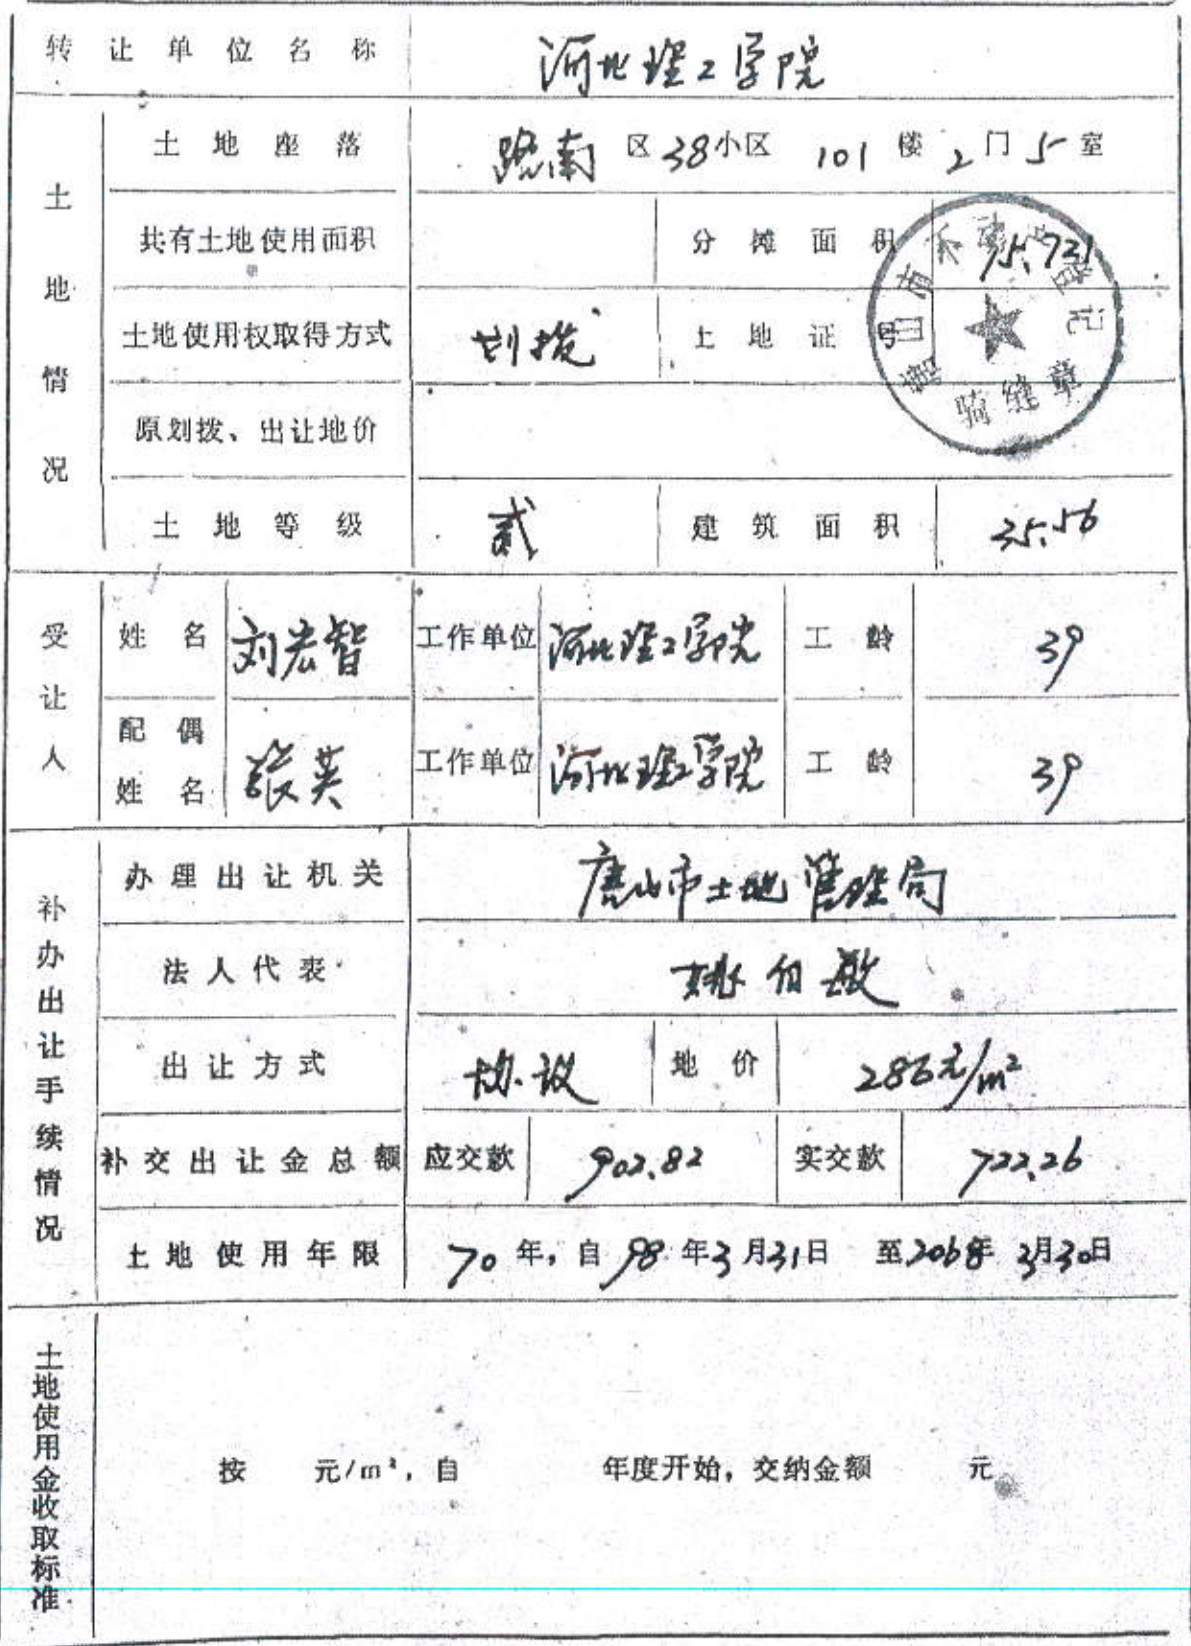 转让单位名称 河北理工学院
土地情况
土地座落 路南 区 38小区 101 楼 2 门 5 室
共有土地使用面积 分摊面积 15.721
土地使用权取得方式 划拨 土地证
唐山市不动产登记
骑缝章
原划拨、出让地价
土地等级 贰 建筑面积 35.56
受让人
姓名 刘宏智 工作单位 河北理工学院 工龄 39
配偶姓名 张英 工作单位 河北理工学院 工龄 39
补办出让手续情况
办理出让机关 唐山市土地管理局
法人代表 姚伯敏
出让方式 协议 地价 286元/m²
补交出让金总额 应交款 902.82 实交款 722.26
土地使用年限 70 年,自 98 年 3 月 31 日 至 2068年 3月30日
土地使用金收取标准
按 元/m²,自 年度开始,交纳金额 元